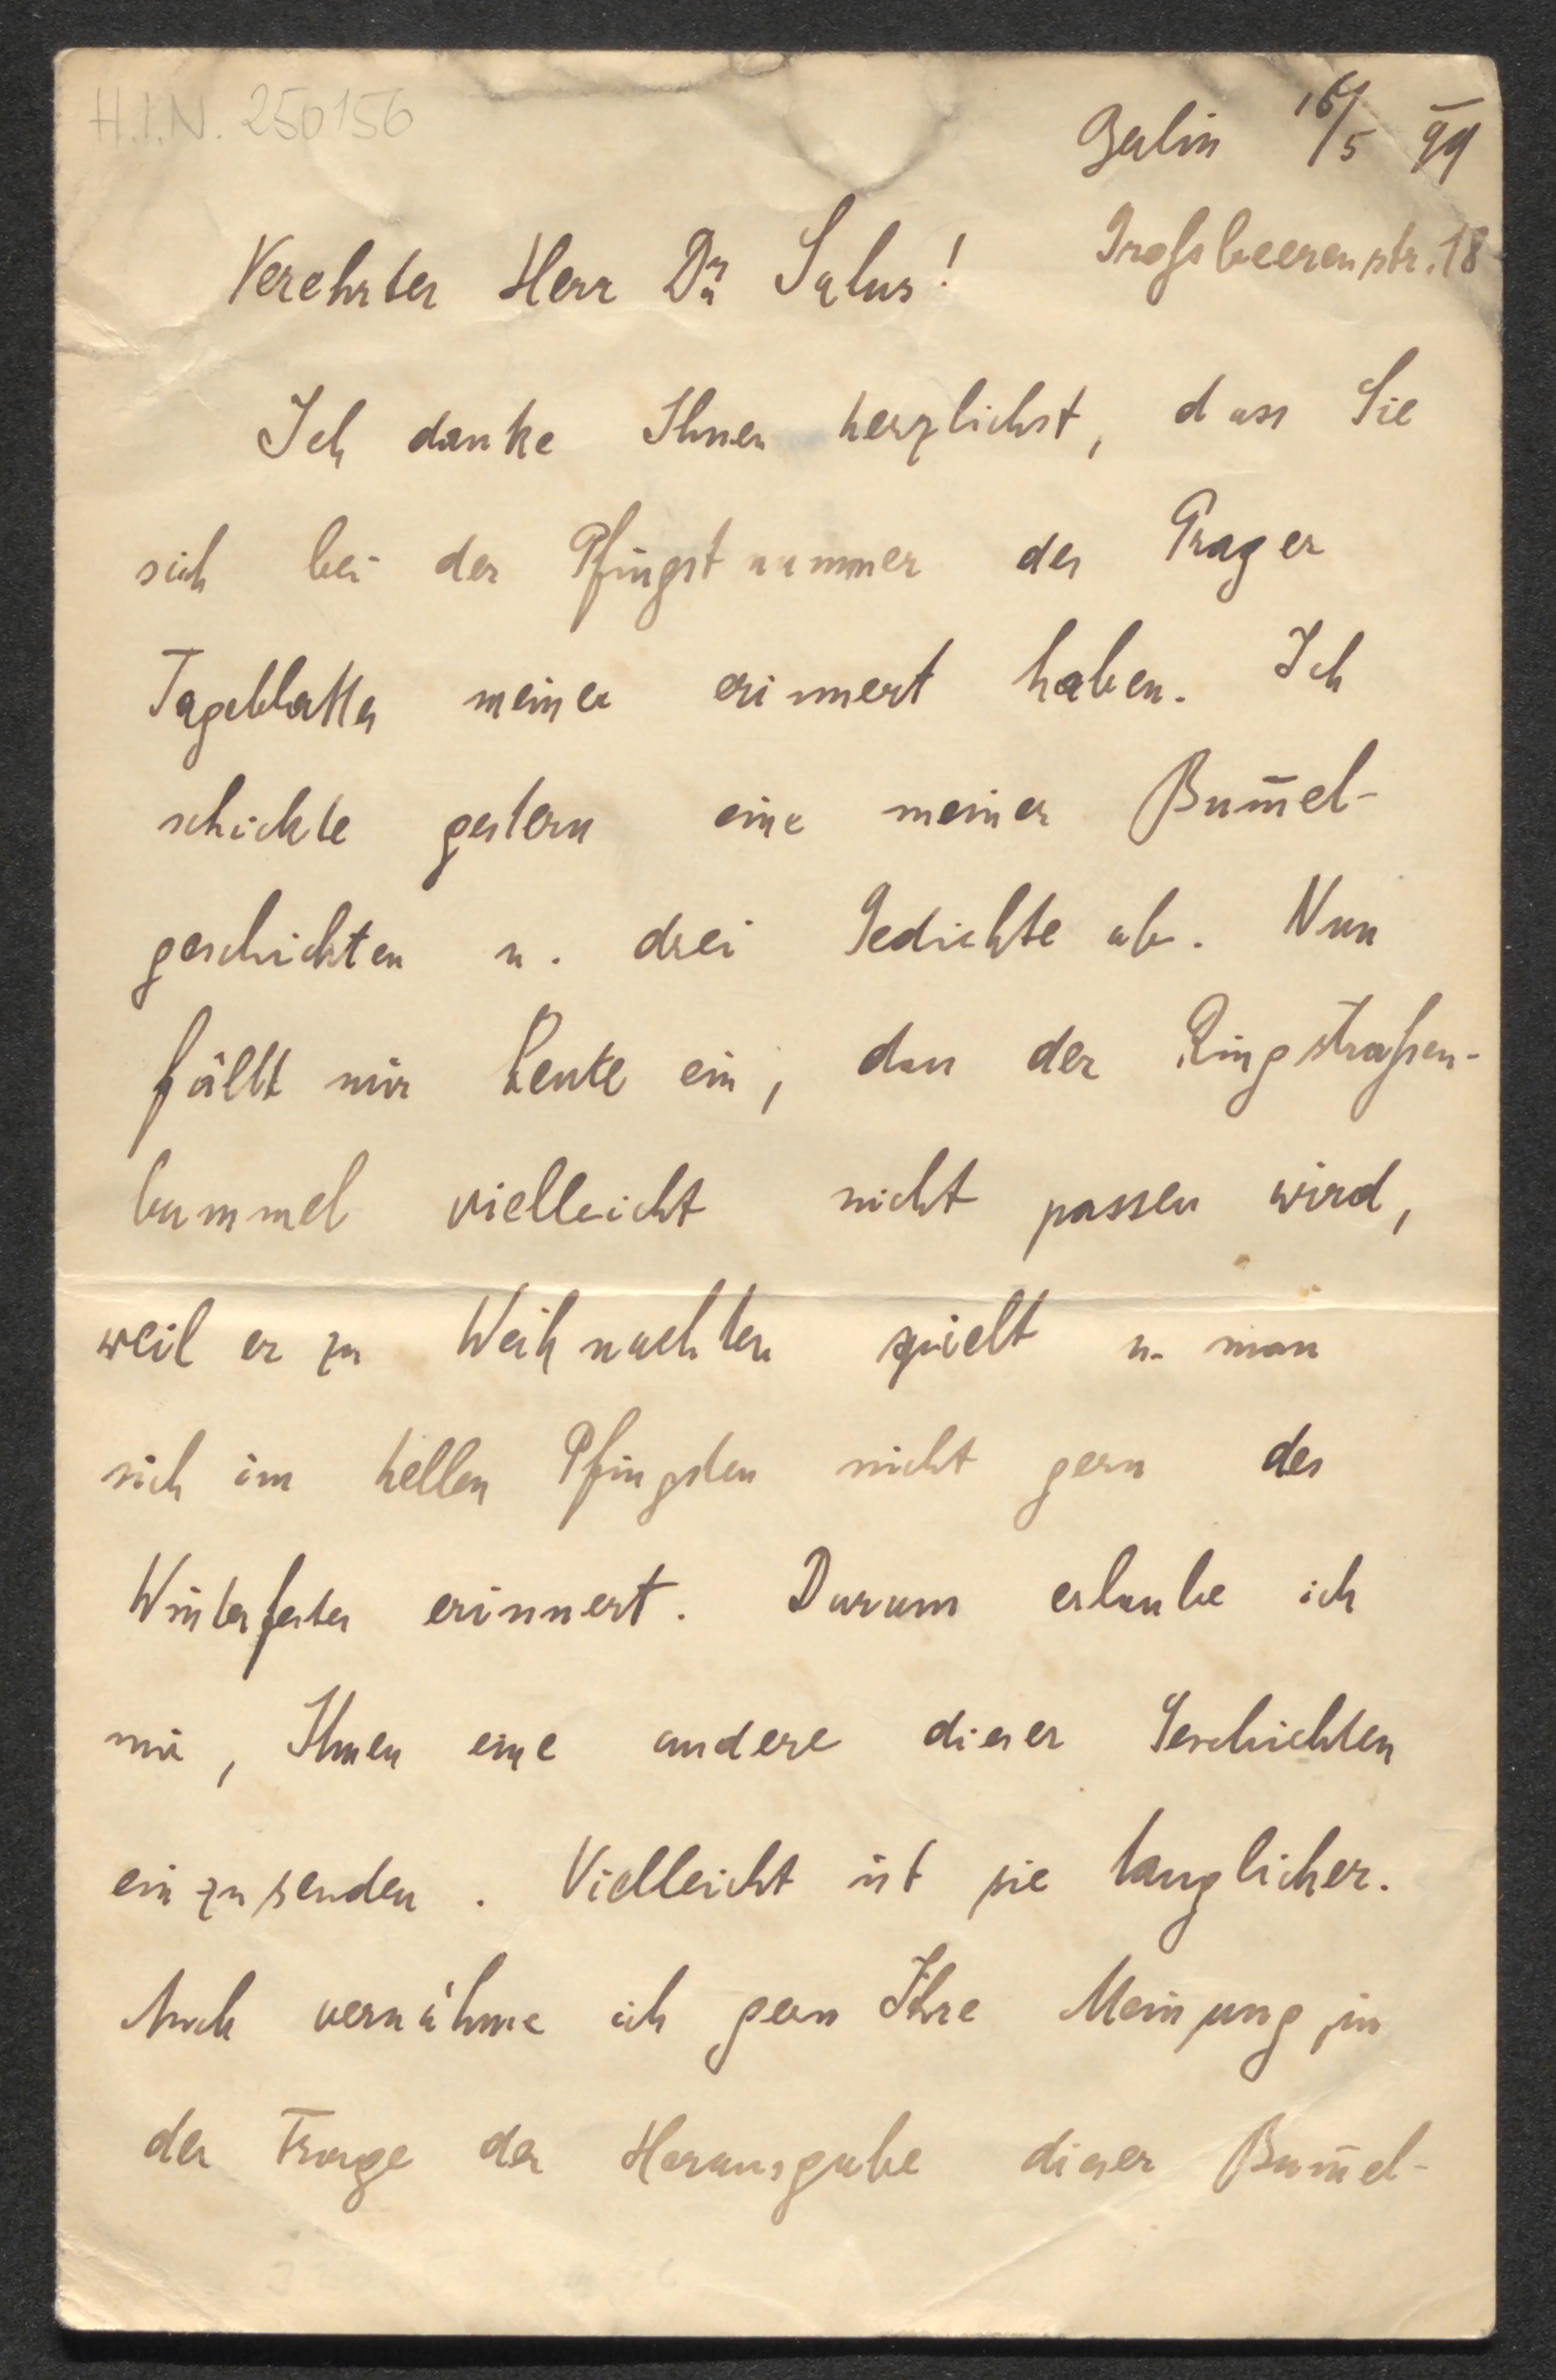 H.I.N. 250156
Berlin 16/5 99
Grossbeerenstr. 18
Verehrter Herr Dr. Salus!
Ich danke Ihnen herzlichst, dass Sie
sich bei der Pfingstnummer des Prager
Tageblattes meiner erinnert haben. Ich
schickte gestern eine meiner Bum̄el-
geschichten u. drei Gedichte ab. Nun
fällt mir heute ein, dass der Ringstraßen-
bummel vielleicht nicht passen wird,
weil er zu Weihnachten spielt u. man
sich im hellen Pfingsten nicht gern des
Winterfestes erinnert. Darum erlaube ich
mir, Ihnen eine andere dieser Geschichten
einzusenden. Vielleicht ist sie tauglicher.
Auch vernähme ich gern Ihre Meinung in
der Frage der Herausgabe dieser Bum̄el-